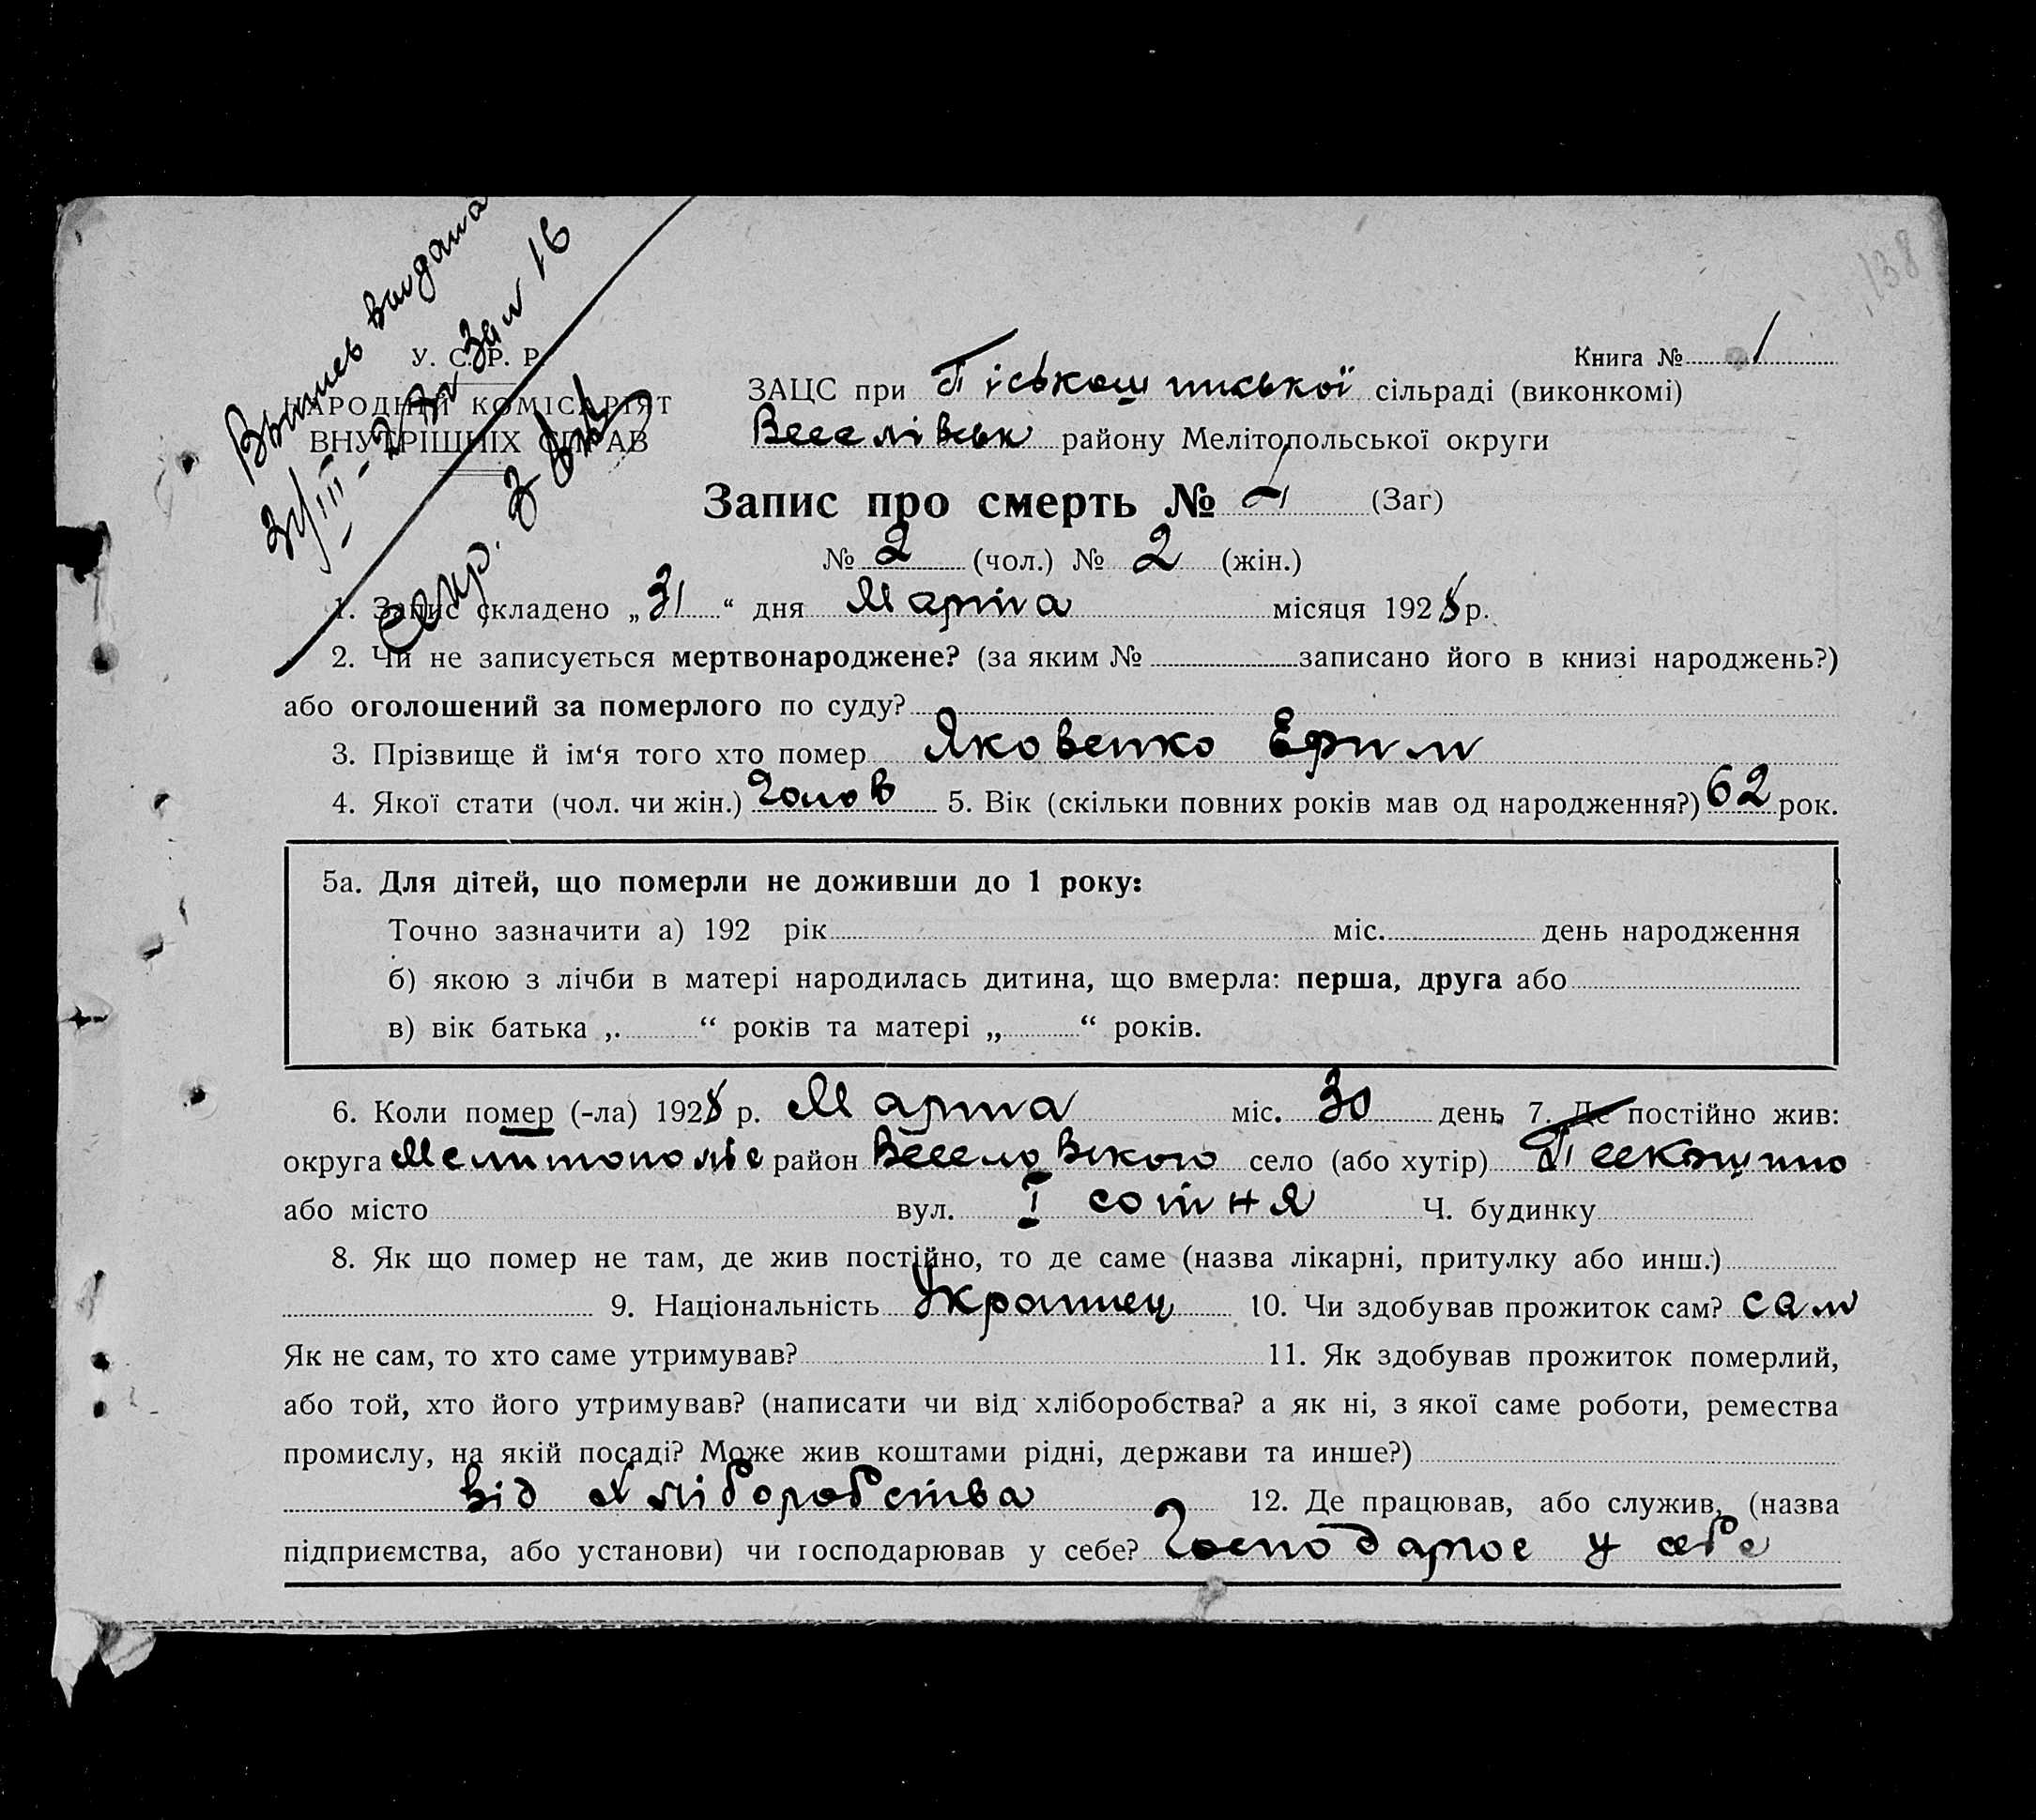 138
Выпись выдана
31/III-28 за № 16
Секр.
У. С. Р. Р.
НАРОДНІЙ КОМІСАРІЯТ
ВНУТРІШНІХ СПРАВ
Книга № 1
ЗАЦС при Піськошинської сільраді (виконкомі)
Веселівськ району Мелітопольської округи
Запис про смерть № 4 (Заг)
№ 2 (чол.) № 2 (жін.)
1. Запис складено „31“ дня Марта місяця 1928 р.
2. Чи не записується мертвонароджене? (за яким № записано його в книзі народжень?)
або оголошений за померлого по суду?
3. Прізвище й ім‘я того хто помер Яковенко Ефим
4. Якої стати (чол. чи жін.) Чолов 5. Вік (скільки повних років мав од народження?) 62 рок.
5а. Для дітей, що померли не доживши до 1 року:
Точно зазначити а) 192 рік міс. день народження
б) якою з лічби в матері народилась дитина, що вмерла: перша, друга або
в) вік батька „ “ років та матері „ “ років.
6. Коли помер (-ла) 1928 р. Марта міс. 30 день 7. Де постійно жив:
округа Мелитополіє район Веселовского село (або хутір) Пескошино
або місто вул. I сотня Ч. будинку
8. Як що помер не там, де жив постійно, то де саме (назва лікарні, притулку або инш.)
9. Національність Украинец 10. Чи здобував прожиток сам? сам
Як не сам, то хто саме утримував? 11. Як здобував прожиток померлий,
або той, хто його утримував? (написати чи від хліборобства? а як ні, з якої саме роботи, ремества
промислу, на якій посаді? Може жив коштами рідні, держави та инше?)
Від хліборобства 12. Де працював, або служив, (назва
підприємства, або установи) чи господарював у себе? Господарює у себе